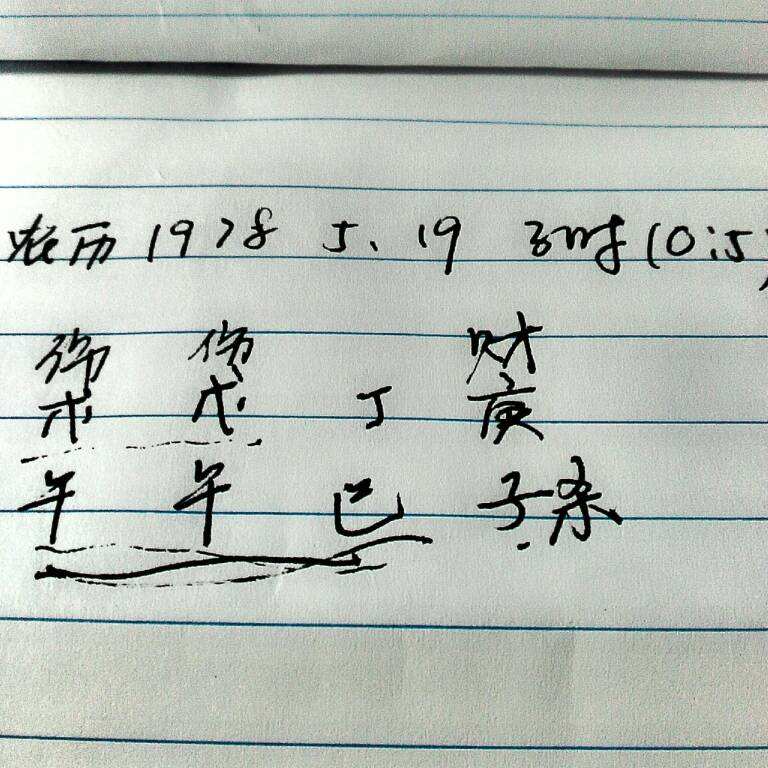 农历1978 5.19 子时(0:5
伤 伤 财
戊 戊 丁 庚
午 午 巳 子杀